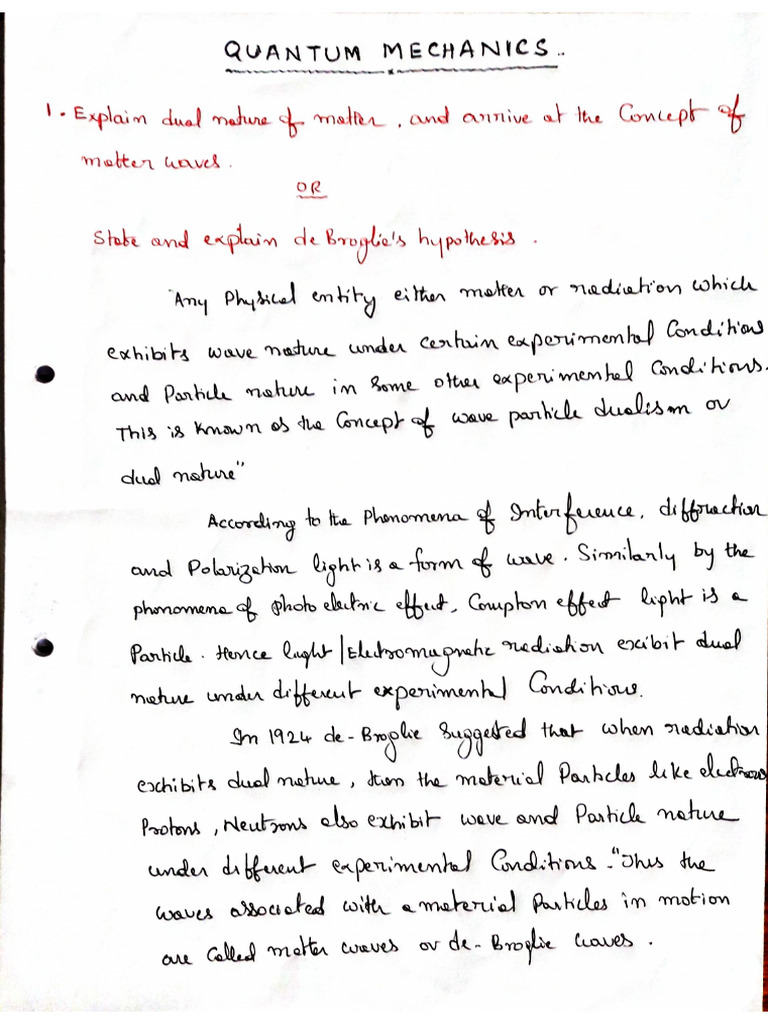 QUANTUM MECHANICS..
1. Explain dual nature of matter, and arrive at the Concept of
matter waves.
OR
State and explain de Broglie's hypothesis.
"Any Physical entity either matter or radiation which
exhibits wave nature under certain experimental Conditions
and Particle nature in some other experimental Conditions.
This is known as the Concept of wave particle dualism or
dual nature"
According to the Phenomena of Interference, diffraction
and Polarization light is a form of wave. Similarly by the
phonomena of photo electric effect, Compton effect light is a
Particle. Hence light/Electromagnetic radiation excibit dual
nature under different experimental Conditions.
In 1924 de-Broglie Suggested that when radiation
exhibits dual nature, then the material Particles like electrons
Protons, Neutrons also exhibit wave and Particle nature
under different experimental Conditions. "Thus the
waves associated with a material Particles in motion
are Called matter waves or de-Broglie waves.